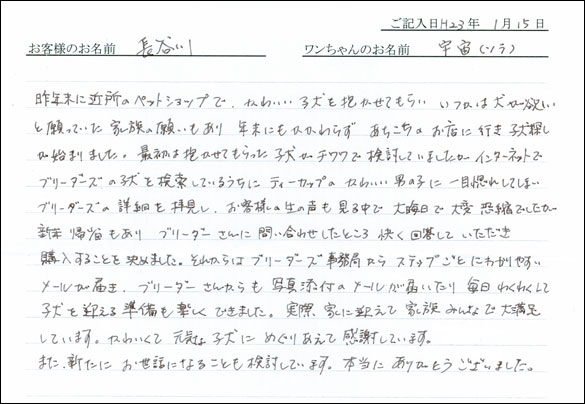 ご記入日H23年 1月15日
お客様のお名前 長谷川 ワンちゃんのお名前 宇宙(ソラ)
昨年末に近所のペットショップで、かわいい子犬を抱かせてもらい いつかは犬が欲しい
と願っていた家族の願いもあり 年末にもかかわらず あちこちのお店に行き子犬探し
が始まりました。最初は抱かせてもらった子犬がチワワで検討していましたがインターネットで
ブリーダーズの子犬を検索しているうちにティーカップのかわいい男の子に一目惚れしてしまい
ブリーダーズの詳細を拝見し、お客様の生の声も見る中で 大晦日で大変恐縮でしたが
新年帰省もあり ブリーダーさんに問い合わせしたところ 快く回答していただき
購入することを決めました。それからはブリーダーズ事務局からステップごとにわかりやすい
メールが届き、ブリーダーさんからも写真添付のメールが届いたり 毎日わくわくして
子犬を迎える準備も楽しくできました。実際、家に迎えて家族みんなで大満足
しています。かわいくて元気な子犬にめぐりあえて感謝しています。
また、新たにお世話になることも検討しています。本当にありがとうございました。